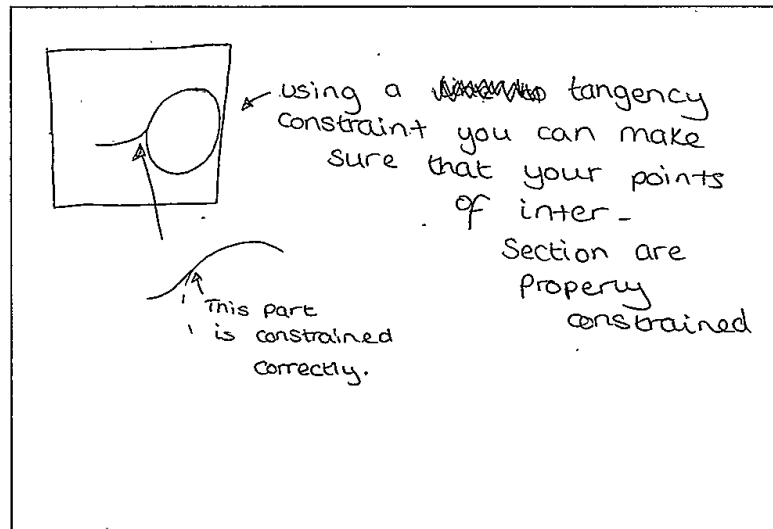 using a tangency
constraint you can make
sure that your points
of inter-
section are
properly
constrained
This part
is constrained
correctly.